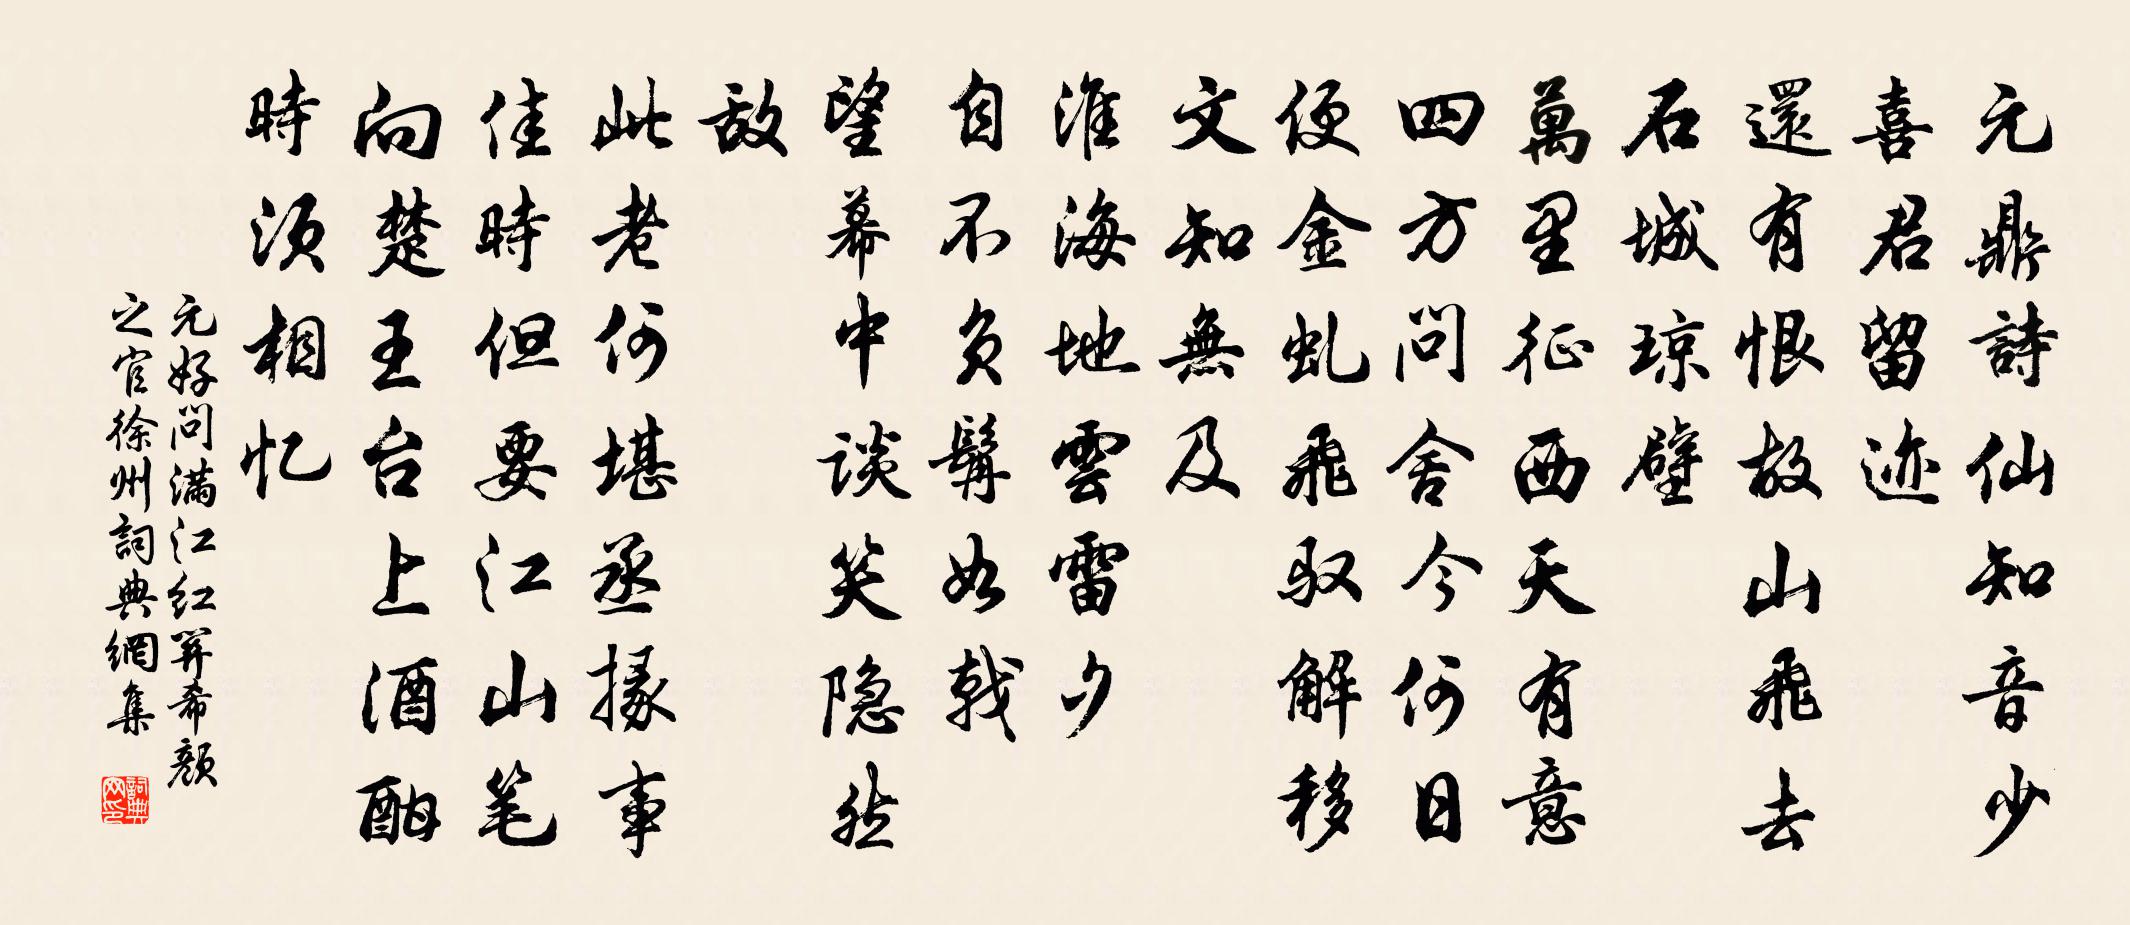 元鼎詩仙知音少
喜君留迹
還有恨故山飛去
石城琼壁
萬里征西天有意
四方問舍今何日
便金虬飛馭解移
文知無及
淮海地雲雷夕
自不負髯如戟
望幕中談笑隐然
敌
此老何堪丞掾事
佳時但要江山笔
向楚王台上酒酣
時须相忆
元好問满江红幷希颜
之官徐州詞典網集
詞典網印